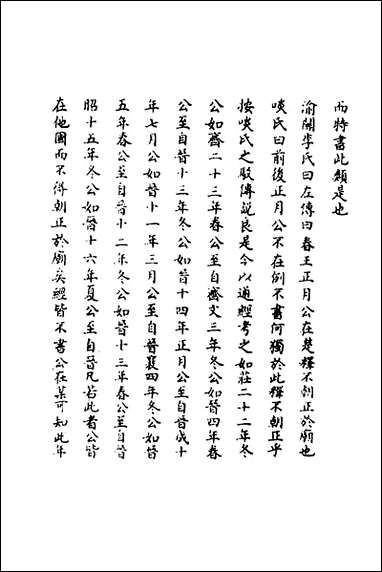 而特書此類是也
渝關李氏曰左傳曰春王正月公在楚釋不朝正於廟也
啖氏曰前後正月公不在例不書何獨於此釋不朝正乎
按啖氏之駁傳說良是今以遍經考之如莊二十二年冬
公如齊二十三年春公至自齊文三年冬公如晉四年春
公至自晉十三年冬公如晉十四年正月公至自晉成十
年七月公如晉十一年三月公至自晉襄四年冬公如晉
五年春公至自晉十二年冬公如晉十三年春公至自晉
昭十五年冬公如晉十六年夏公至自晉凡若此者公皆
在他國而不得朝正於廟矣經皆不書公在某可知此年